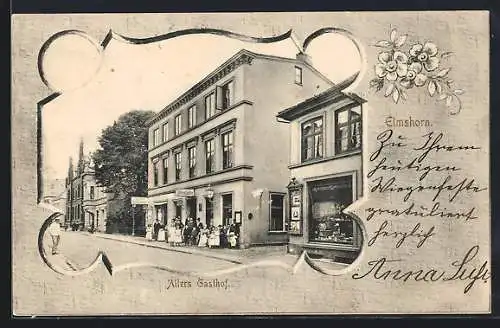 Elmshorn.
Zu Ihrem
heutigen
Wiegenfeste
gratuliert
herzlich
Anna
Ahlers Gasthof.